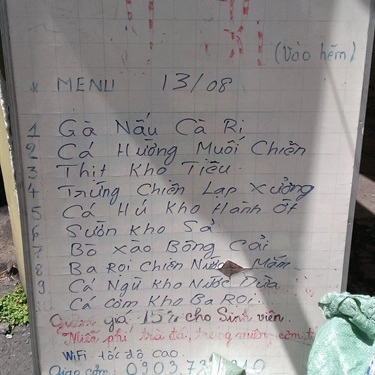 (Vào hẻm)
* MENU 13/08
1 Gà Nấu Cà Rị
2 Cá Hường Muối Chiên
3 Thịt Kho Tiêu
4 Trứng Chiên Lạp Xưởng
5 Cá Hú Kho Hành Ớt
6 Sườn Kho Sả
7 Bò Xào Bông Cải
8 Ba Rọi Chiên Nước Mắm
9 Cá Ngừ Kho Nước Dừa
Cá Cơm Kho Ba Rọi
giá 15k cho Sinh viên.
Miễn phí trà đá, tráng miệng, cơm t
WiFi tốc độ cao
Giao cơm: 0903.73